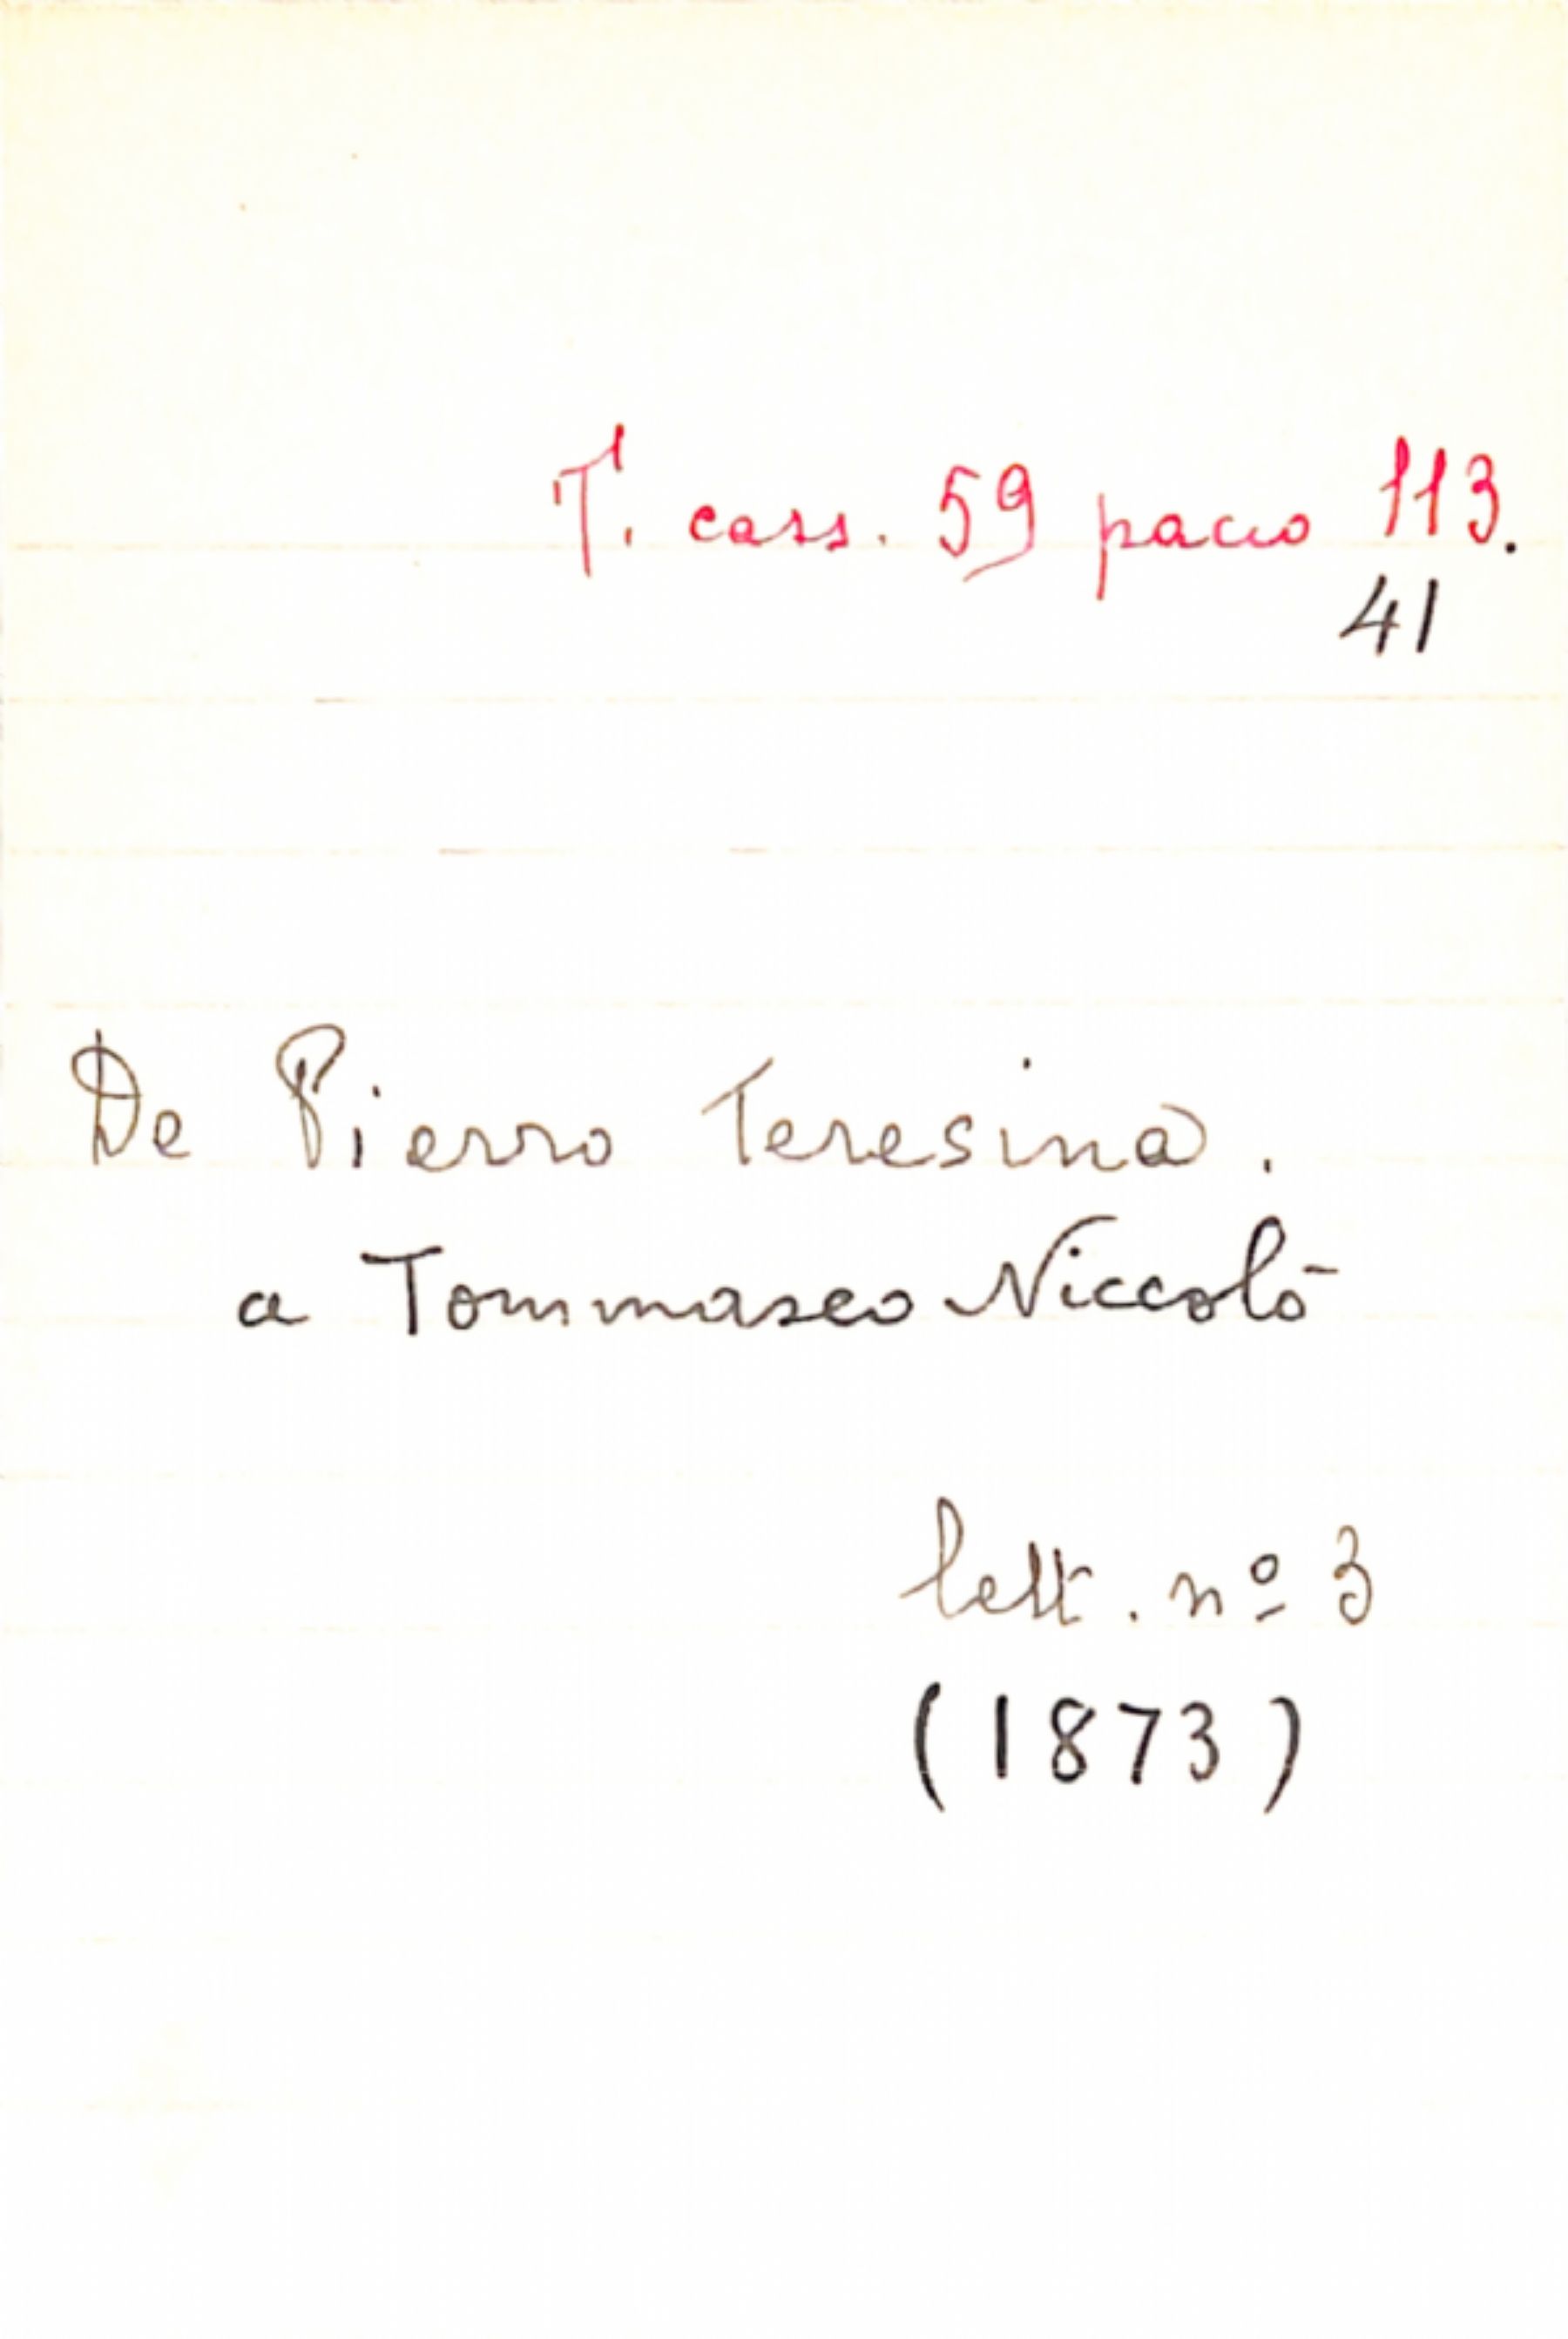 T. cass. 59 pacco 113.
41
De Pierro Teresina.
a Tommaseo Niccolò
lett. nº 3
(1873)